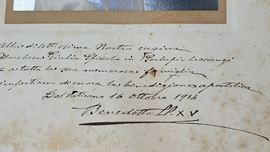 Alla dilettissima Nostra cugina
Marchesa Giulia Spinola in
e a tutta la sua numerosa famiglia
impartiamo di cuore la benedizione apostolica
Dal Vaticano 16 ottobre 1914
Benedetto PP. XV